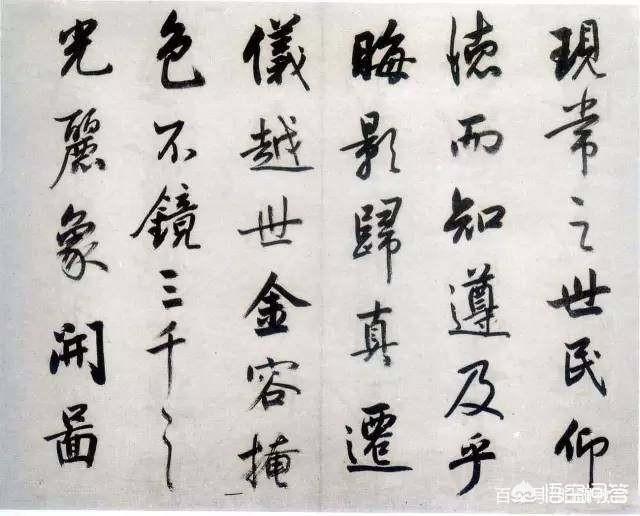 現常之世民仰
德而知遵及乎
晦影歸真遷
儀越世金容掩
色不鏡三千之
光麗象開圖
悟空问答